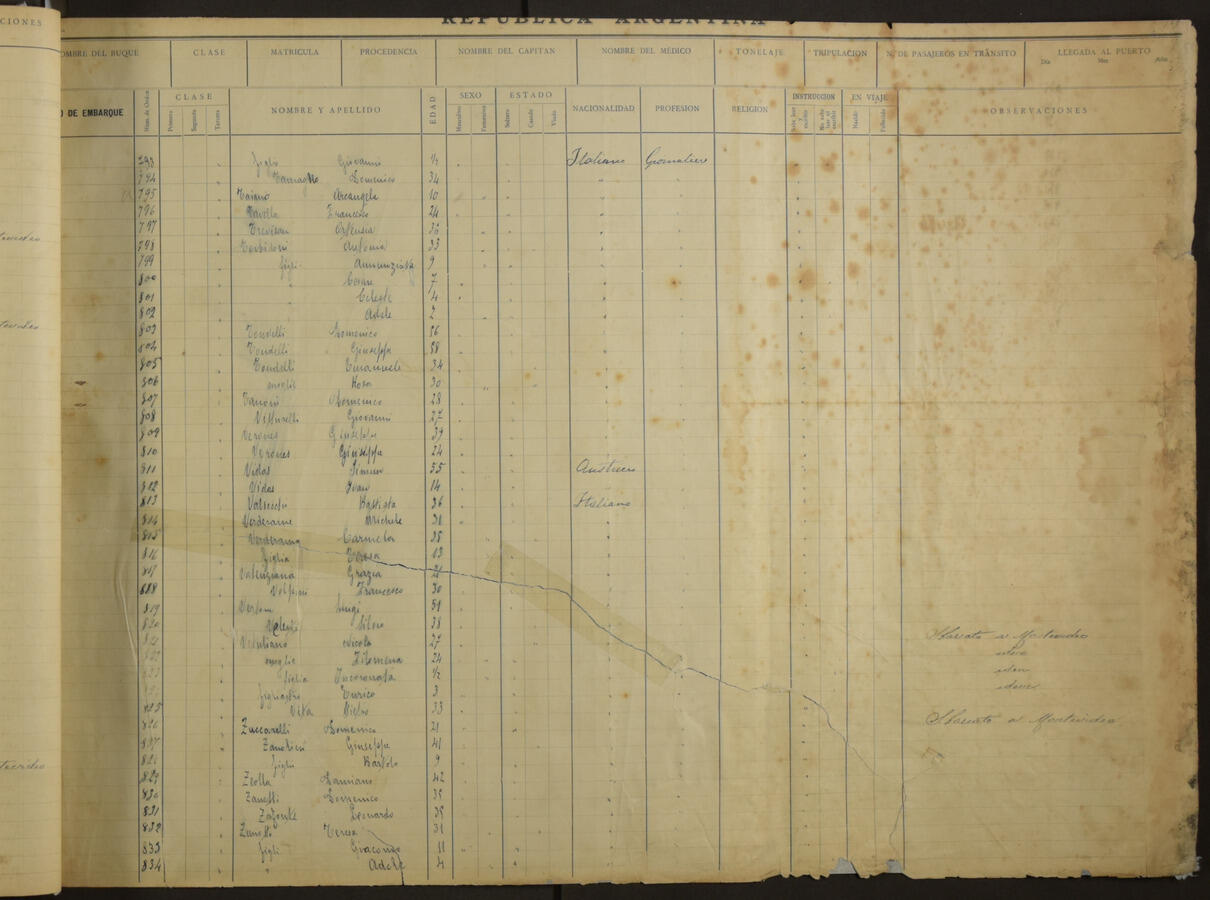 CIONES
REPUBLICA ARGENTINA
OMBRE DEL BUQUE CLASE MATRICULA PROCEDENCIA NOMBRE DEL CAPITAN NOMBRE DEL MÉDICO TONELAJE TRIPULACION N. DE PASAJEROS EN TRÁNSITO LLEGADA AL PUERTO
Dia Mes Año
O DE EMBARQUE Núm. de Orden CLASE Primera Segunda Tercera NOMBRE Y APELLIDO EDAD SEXO Masculino Femenino ESTADO Soltero Casado Viudo NACIONALIDAD PROFESION RELIGION INSTRUCCION EN VIAJE Nacido Fallecido OBSERVACIONES
793 figlio Giovanni ½ Italiano Giornaliere
794 Domenico 34
795 Taiano Arcangela 10
796 Tavella Francesco 24
797 Trevisan Ortensia 36
798 Torbidoni Antonia 33
799 figli Annunziata 9
800 Cesare 7
801 Celeste 4
802 Adele 2
803 Tondelli Domenico 56
804 Tondelli Giuseppe 58
805 Tondelli Emanuele 34
806 moglie Rosa 30
807 Vanoni Domenico 28
808 Vetturelli Giovanni 27
809 Verones Giuseppe 39
810 Verones Giuseppe 24
811 Vidas Simun 55 Austriaco
812 Vidas Ivan 14
813 Battista 36 Italiano
814 Verderame Michele 31
815 Verderame Carmela 35
816 figlia Teresa 13
817 Valenziana Grazia 21
818 Volpini Francesco 30
819 Luigi 51
820 Valenti Silvio 38
821 Nicola 27 Sbarcato a Montevideo
822 moglie Filomena 24 idem
823 figlia Incoronata ½ idem
824 figliastro Enrico 3 idem
825 Vita Pietro 33
826 Zuccarelli Domenico 21 Sbarcato a Montevideo
827 Zandrini Giuseppe 41
828 figlio Bartolo 9
829 Zeolla Damiano 42
830 Zanetti Domenico 35
831 Zafonte Leonardo 35
832 Zanotti Teresa 31
833 figli Giacomo 11
834 " Adele 4